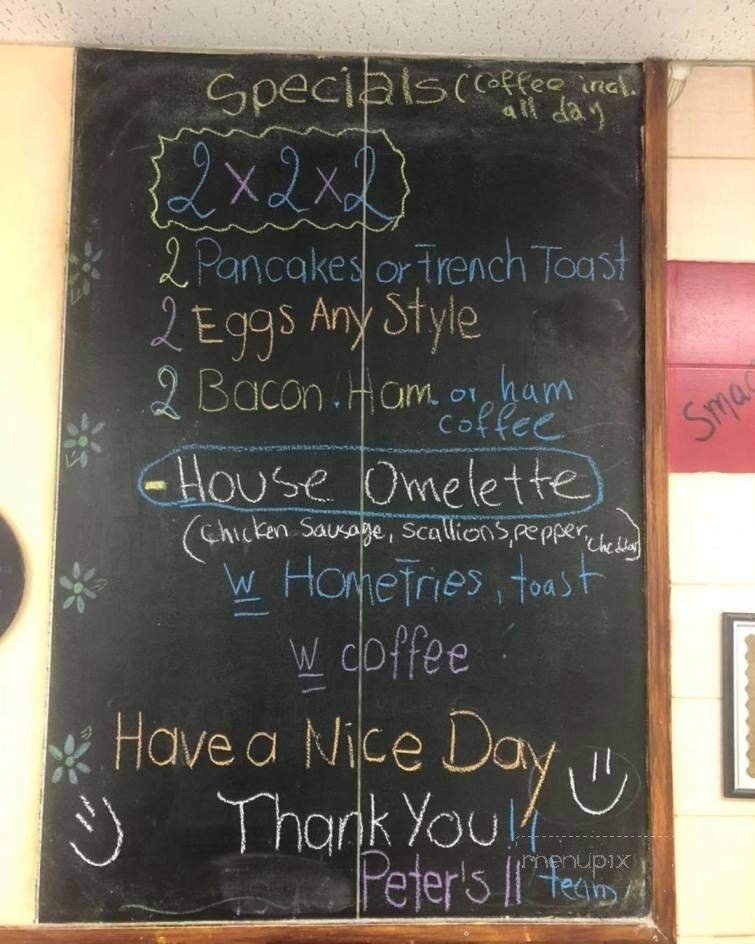 Specials (Coffee incl.
all day
2 x 2 x 2
2 Pancakes or French Toast
2 Eggs Any Style
2 Bacon. Ham. or ham
coffee
- House Omelette
(Chicken Sausage, Scallions, pepper, cheddar)
W HomeFries, toast
W coffee
Have a Nice Day
Thank You!!
Peter's II team
menupix